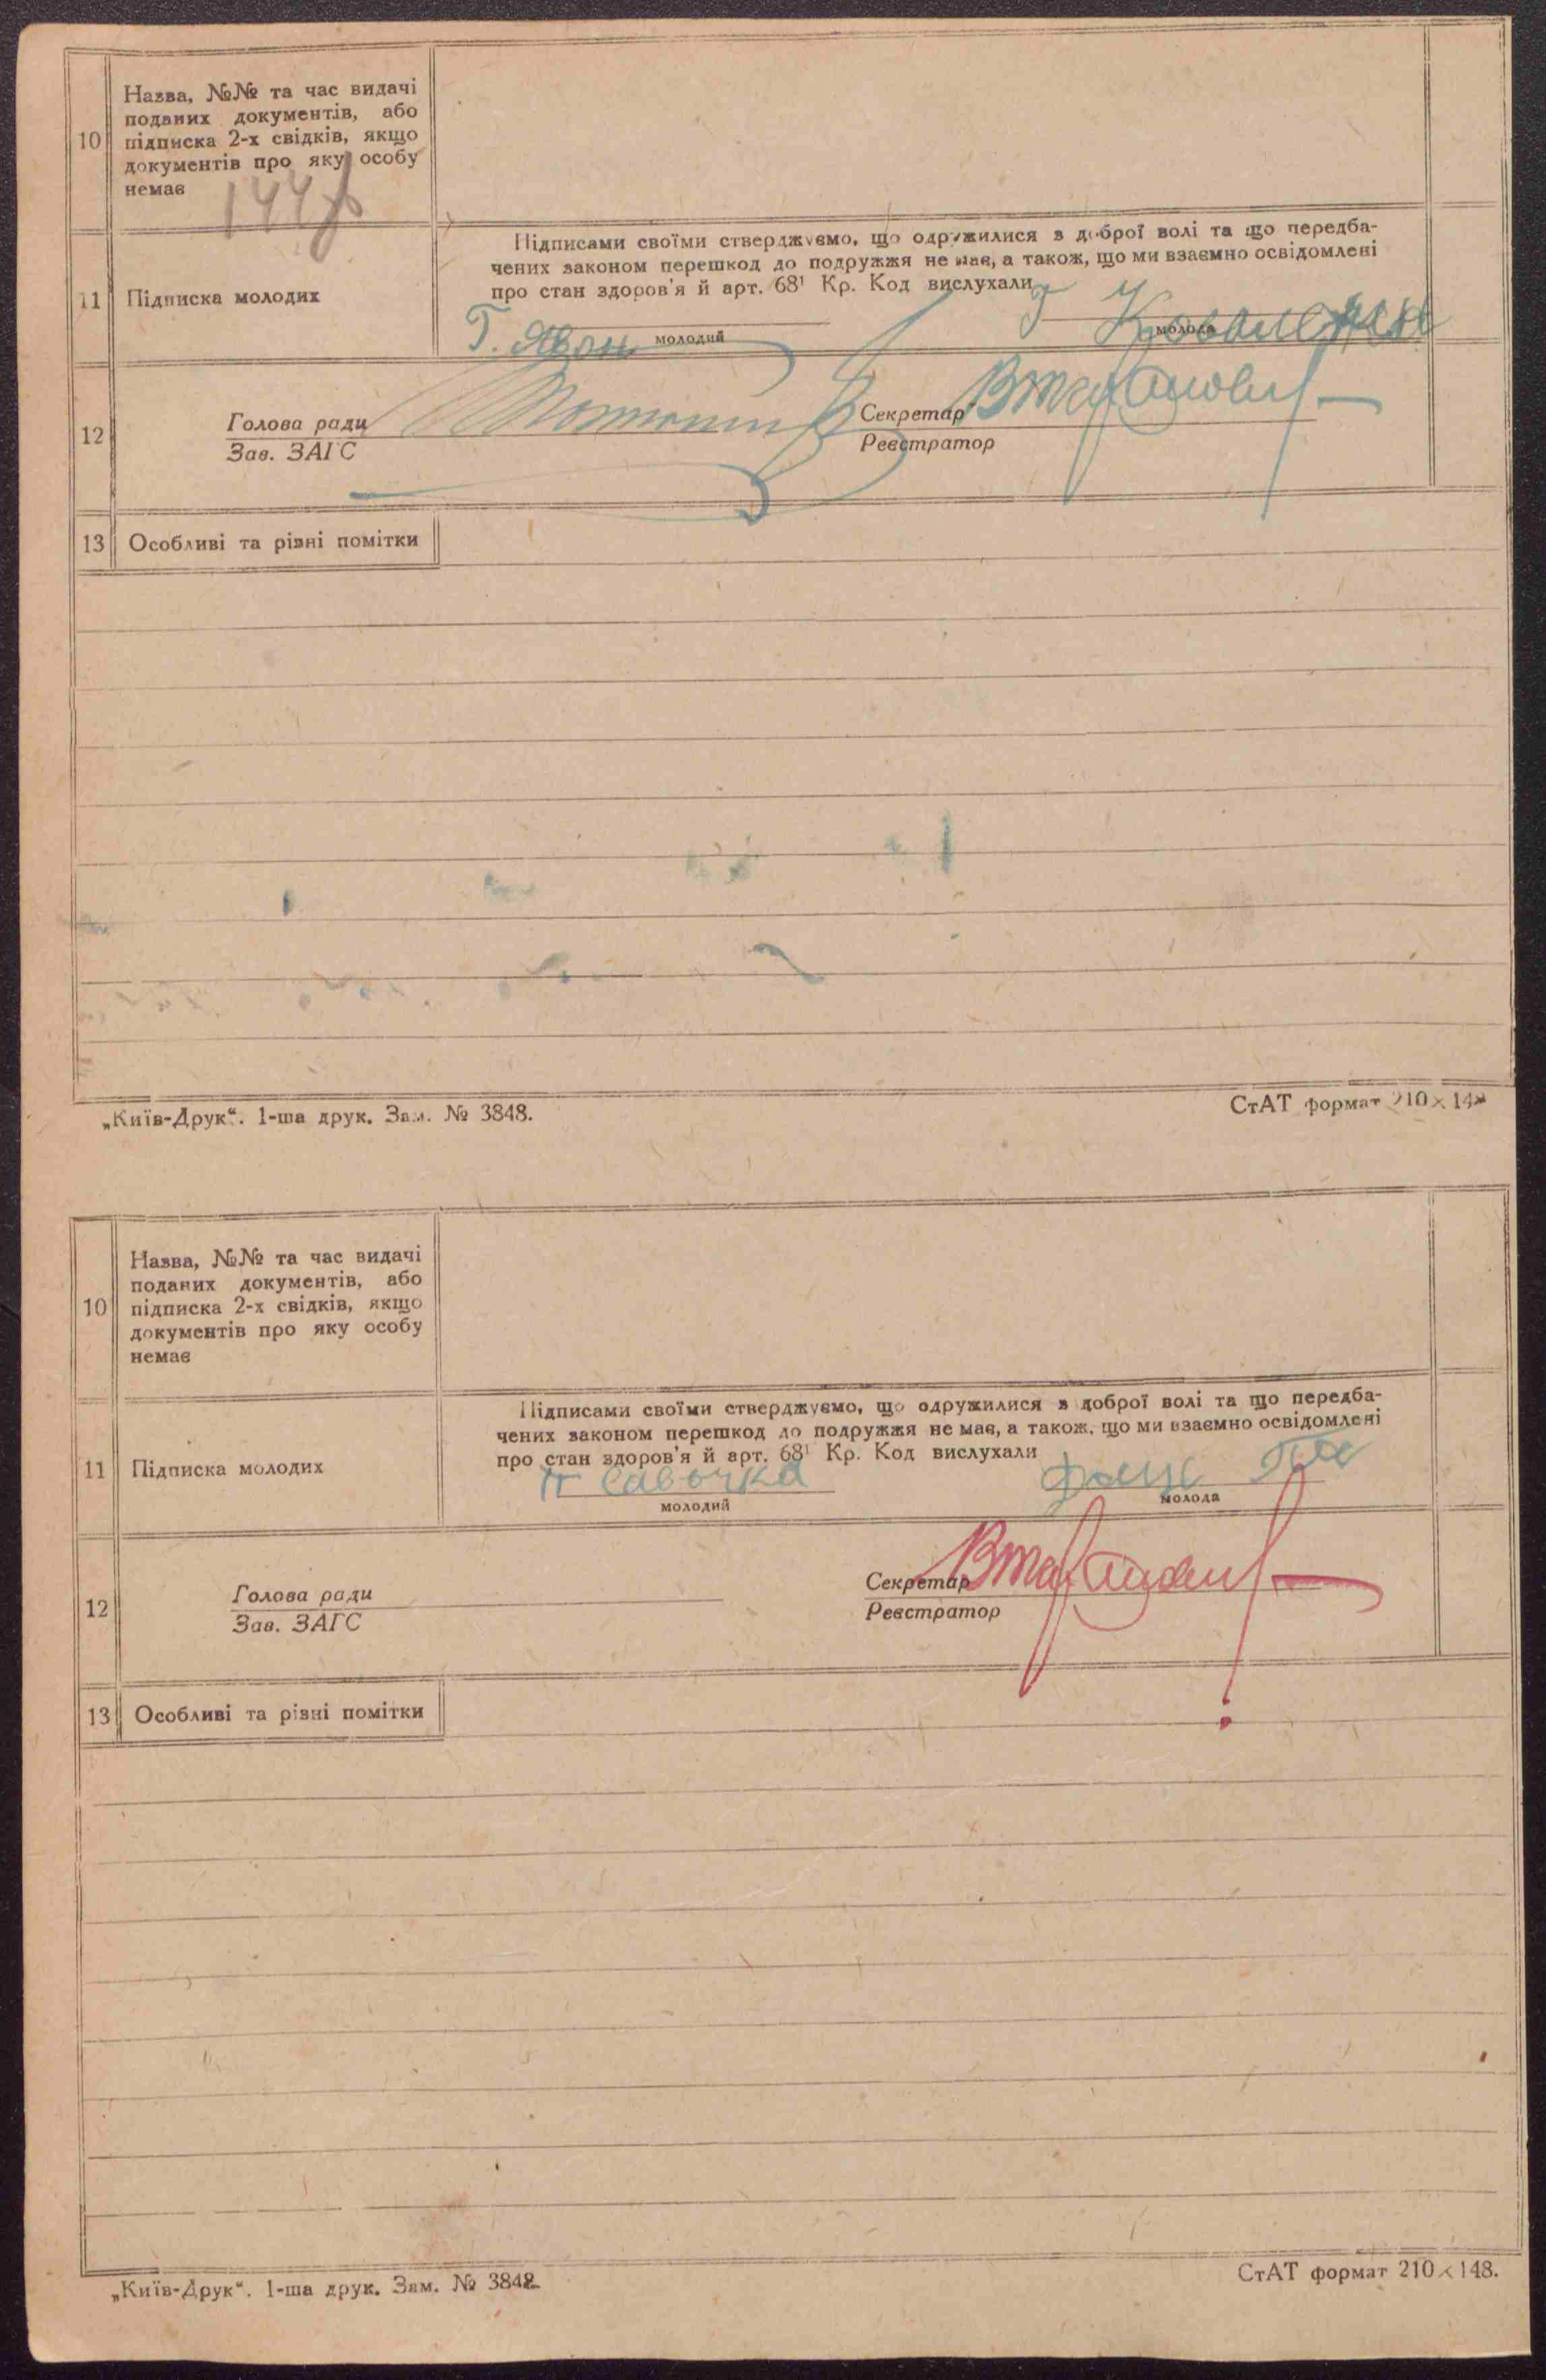 10
Назва, №№ та час видачі
поданих документів, або
підписка 2-х свідків, якщо
документів про яку особу
немає
144
11
Підписка молодих
Підписами своїми стверджуємо, що одружилися з доброї волі та що передба-
чених законом перешкод до подружжя не має, а також, що ми взаємно освідомлені
про стан здоров'я й арт. 68¹ Кр. Код вислухали
Г.
молодий
молода
12
Голова ради
Зав. ЗАГС
Секретар
Реєстратор
13
Особливі та різні помітки
„Київ-Друк“. 1-ша друк. Зам. № 3848.
СтАТ формат 210×148
10
Назва, №№ та час видачі
поданих документів, або
підписка 2-х свідків, якщо
документів про яку особу
немає
11
Підписка молодих
Підписами своїми стверджуємо, що одружилися з доброї волі та що передба-
чених законом перешкод до подружжя не має, а також, що ми взаємно освідомлені
про стан здоров'я й арт. 68¹ Кр. Код вислухали
Савочка
молодий
молода
12
Голова ради
Зав. ЗАГС
Секретар
Реєстратор
13
Особливі та різні помітки
„Київ-Друк“. 1-ша друк. Зам. № 3848.
СтАТ формат 210×148.